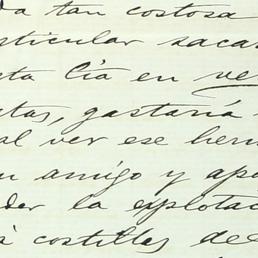 da tan costosa
rticular saca
sta Cía en ve
tas, gastaría
al ver ese her
n amigo y apo
der la esplotac
à costillas de